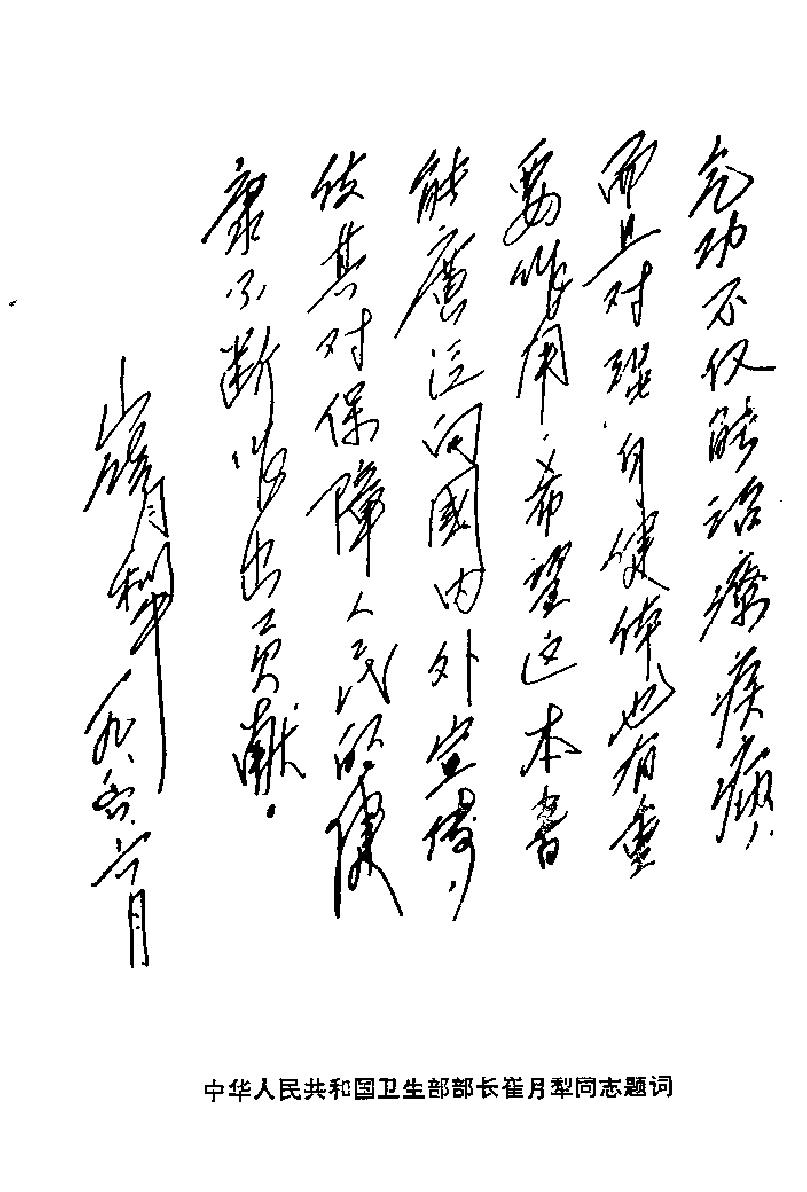 气功不仅能治療疾病，
而且对强身健体也有重
要作用，希望这本書
能廣泛向國内外宣傳，
使其对保障人民的健
康不断作出贡献。
崔月犁
八五、六月
中华人民共和国卫生部部长崔月犁同志题词